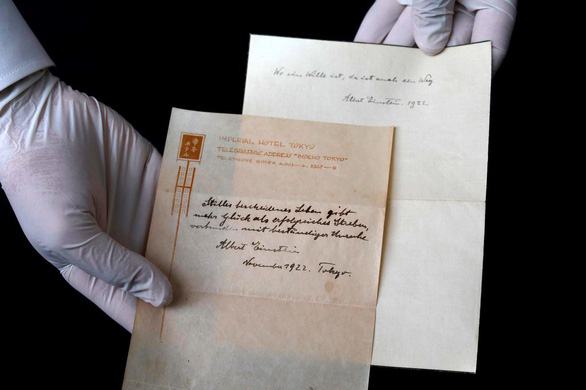 Wo ein Wille ist, da ist auch ein Weg
Albert Einstein. 1922
IMPERIAL HOTEL TOKYO
TELEGRAPHIC ADDRESS "IMPIHO TOKYO"
TELEPHONE GINZA
Stilles bescheidenes Leben gibt
mehr Glück als erfolgreiches Streben,
verbunden mit beständiger Unruhe
Albert Einstein
November 1922. Tokyo.